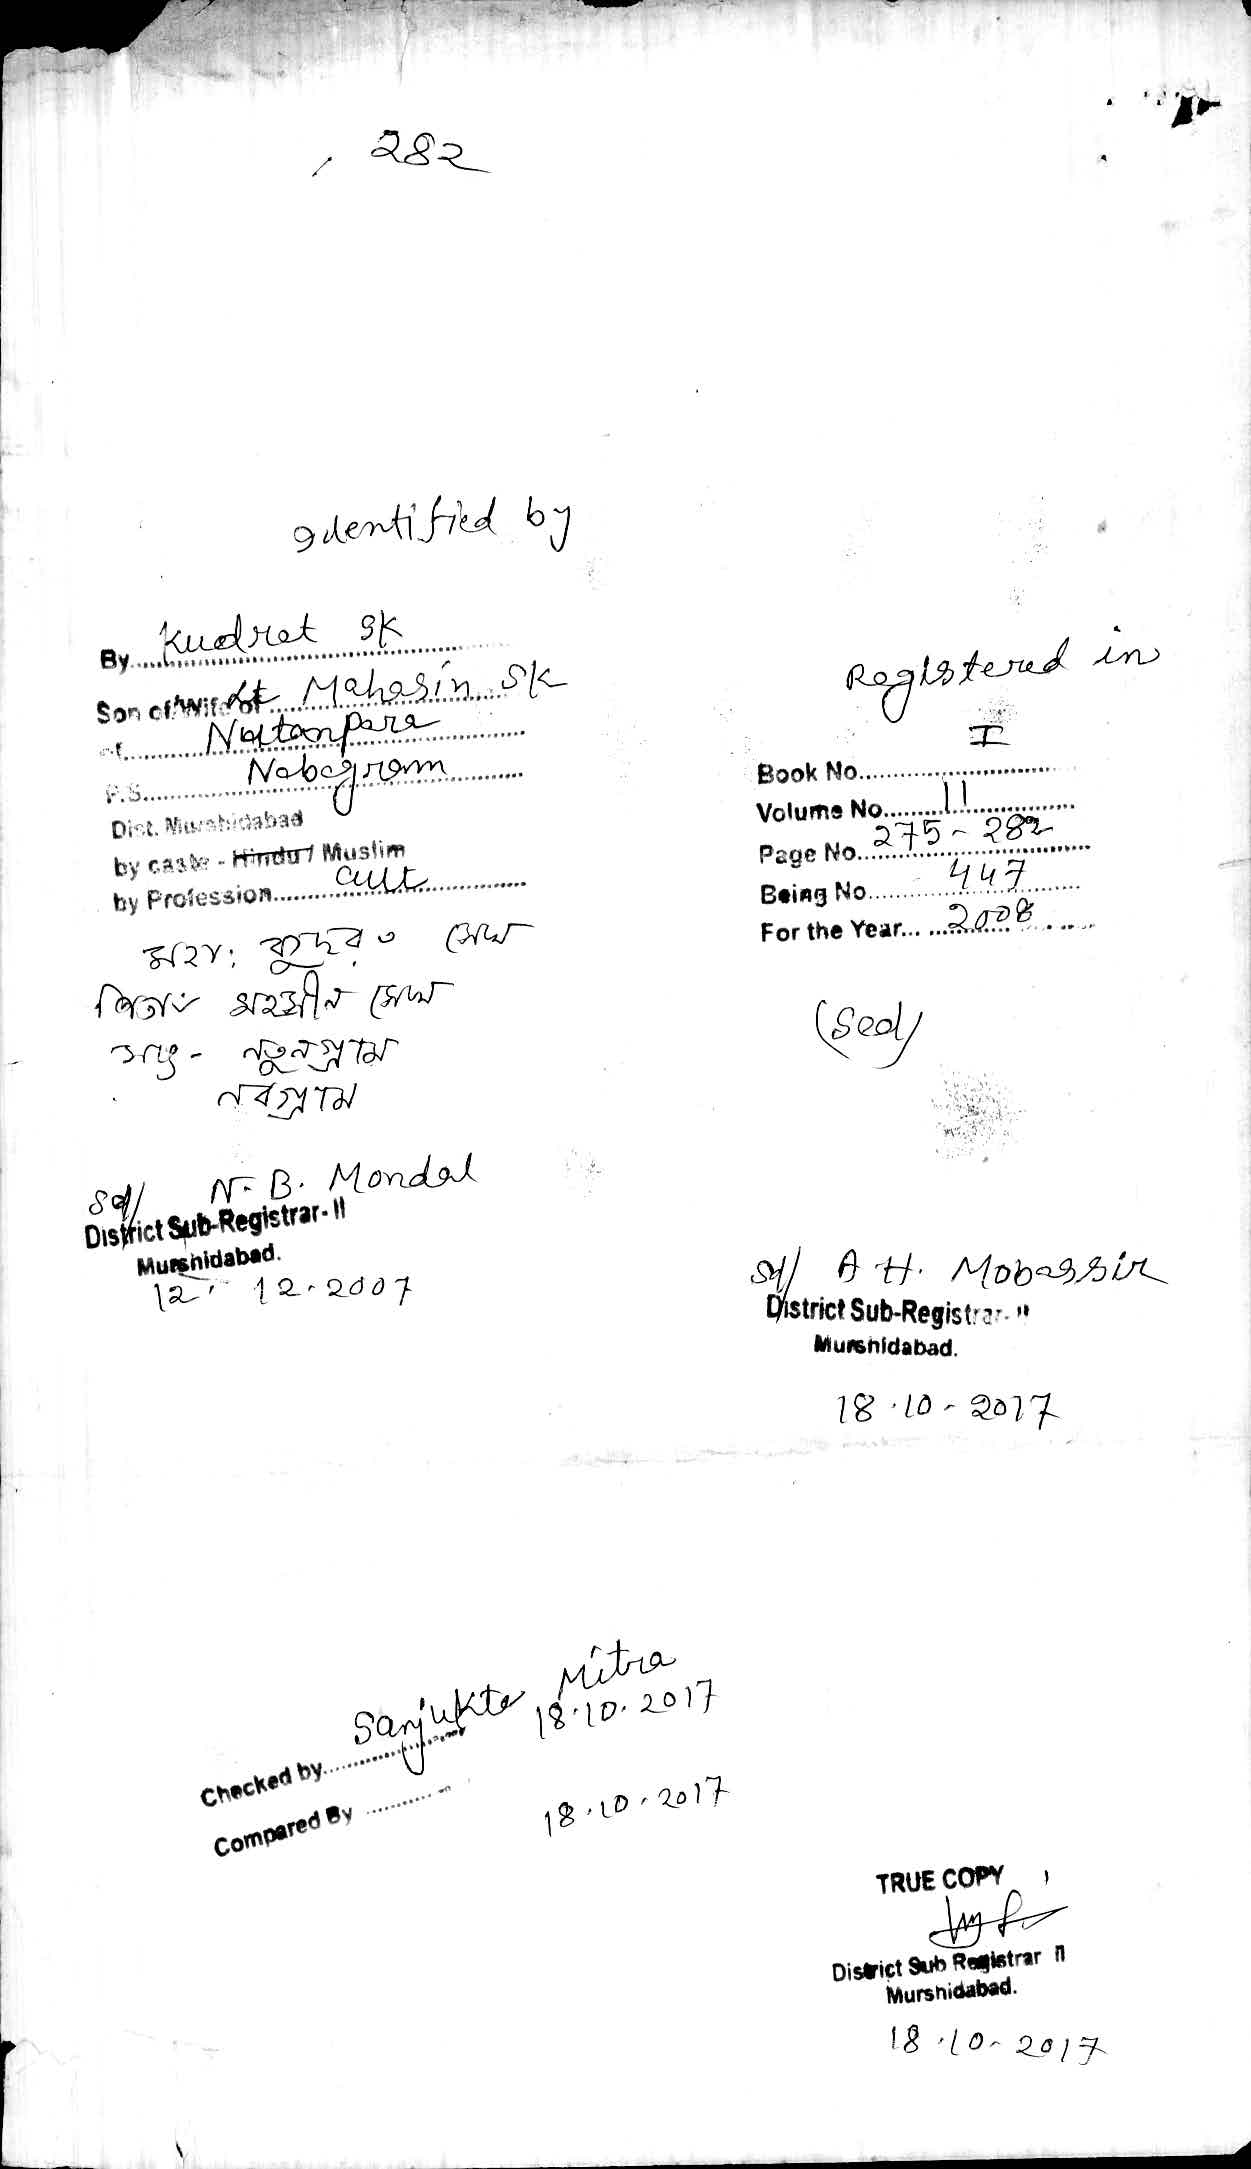 282
Identified by
By Kudret SK
Son of/Wife of Lt Mahasin SK
of Nutanpara
P.S. Nabagram
Dist. Murshidabad
by caste - Hindu / Muslim
by Profession cult
মহঃ কুদরত সেখ
পিতা মহসীন সেখ
সাং - নতুনগ্রাম
নবগ্রাম
Sd/ N. B. Mondal
District Sub-Registrar-II
Murshidabad.
12. 12.2007
Registered in
Book No. I
Volume No. 11
Page No. 275 - 282
Being No. 447
For the Year 2008
(Seal)
Sd/ A H. Mobassir
District Sub-Registrar-II
Murshidabad.
18.10-2017
Checked by Sanjukta Mitra
18.10.2017
Compared By
18.10.2017
TRUE COPY
District Sub Registrar II
Murshidabad.
18.10-2017